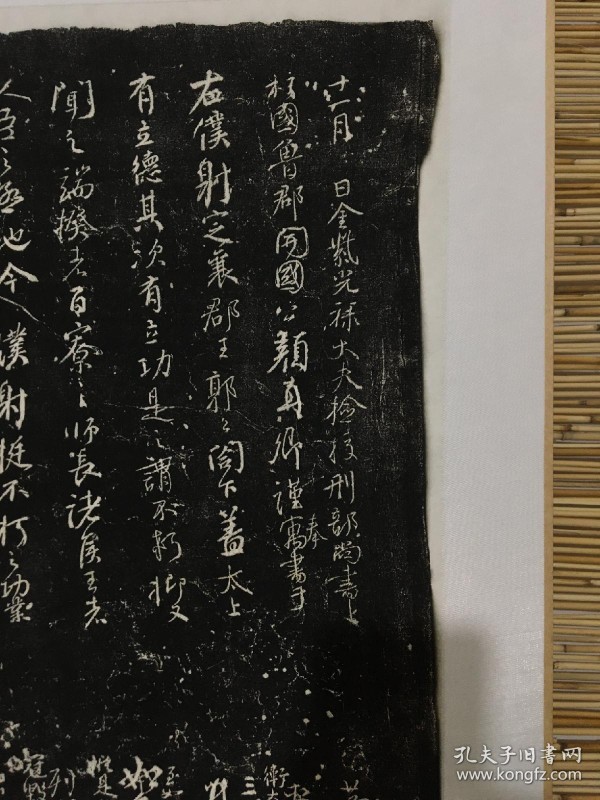 十一月 日金紫光祿大夫檢校刑部尚書上
柱國魯郡開國公顏真卿謹奉寓書于
右僕射定襄郡王郭公閤下蓋太上
有立德其次有立功是之謂不朽抑又
聞之端揆者百寮之師長諸侯王者
人臣之極地今僕射挺不朽之功業
孔夫子旧书网
www.kongfz.com